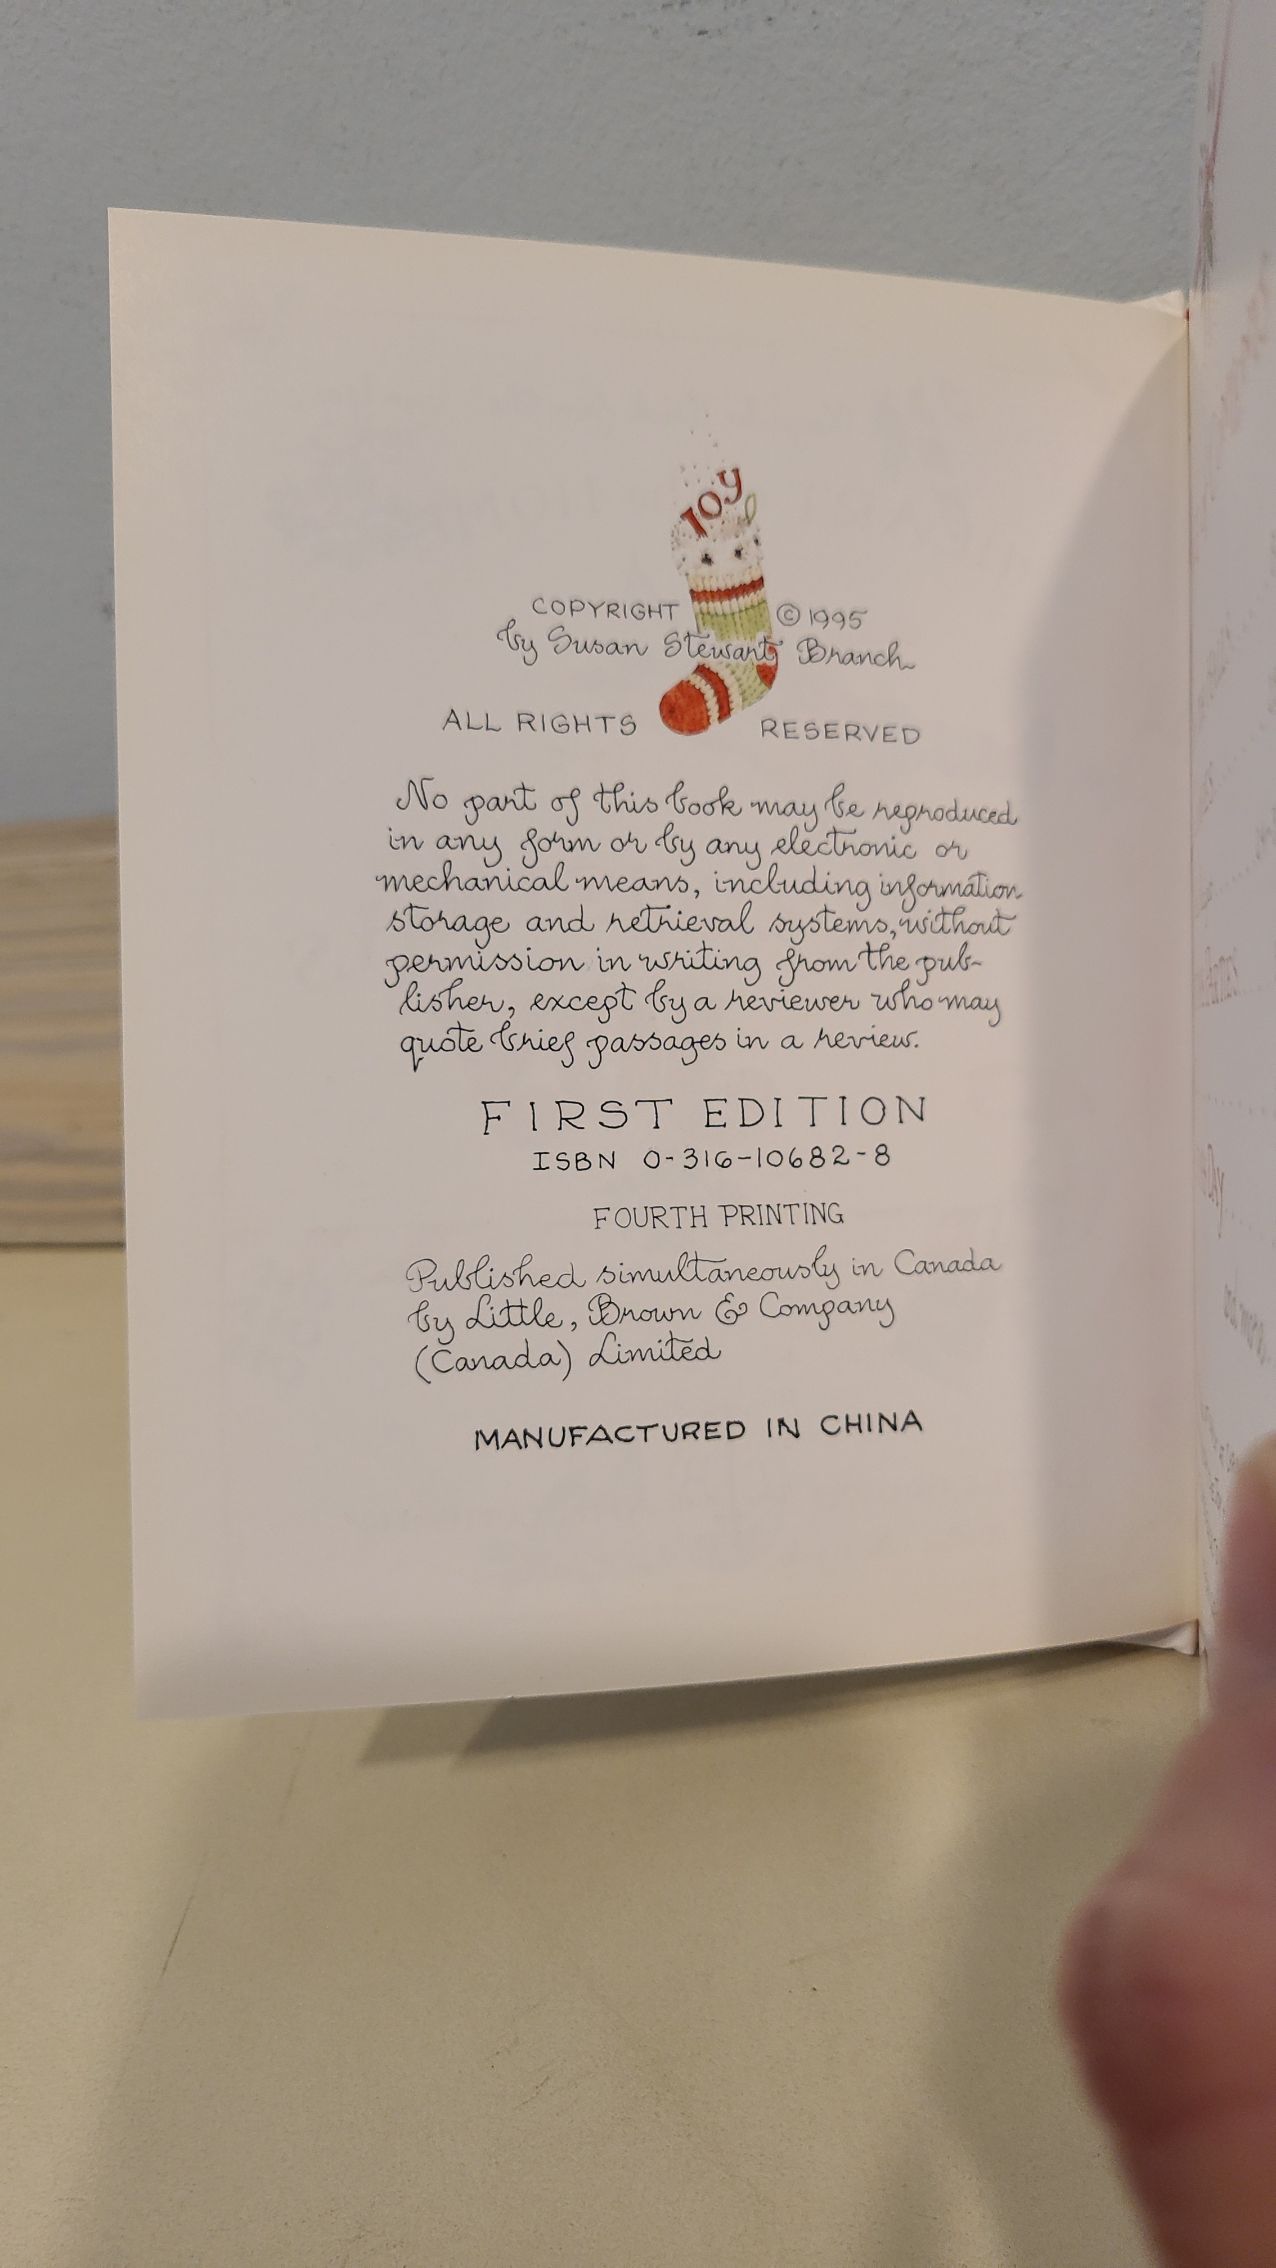 JOY
COPYRIGHT © 1995
by Susan Stewart Branch
ALL RIGHTS RESERVED
No part of this book may be reproduced
in any form or by any electronic or
mechanical means, including information
storage and retrieval systems, without
permission in writing from the pub-
lisher, except by a reviewer who may
quote brief passages in a review.
FIRST EDITION
ISBN 0-316-10682-8
FOURTH PRINTING
Published simultaneously in Canada
by Little, Brown & Company
(Canada) Limited
MANUFACTURED IN CHINA